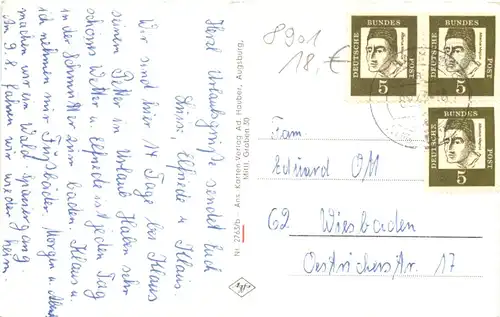 Wir sind hier 14 Tage bei Klaus
seinen Vetter in Urlaub. Haben sehr
schönes Wetter u. Elfriede ist jeden Tag
in der Schmutter zum baden. Klaus u.
ich nehmen nur Fußbäder. Morgen u. Abend
machen wir ein Wald spaziergang.
Am 9.8. fahren wir wieder heim.
Herzl. Urlaubsgrüße sendet Euch
Elfriede u. Klaus.
Nr. 2765/b - Ans. Karten-Verlag Ad. Hauber, Augsburg,
Mittl. Graben 30
8901
18,- €
DEUTSCHE
BUNDES
POST
5
DEUTSCHE
BUNDES
POST
5
DEUTSCHE
BUNDES
POST
5
Fam.
Eduard Ott
62 Wiesbaden
Oestricherstr. 17